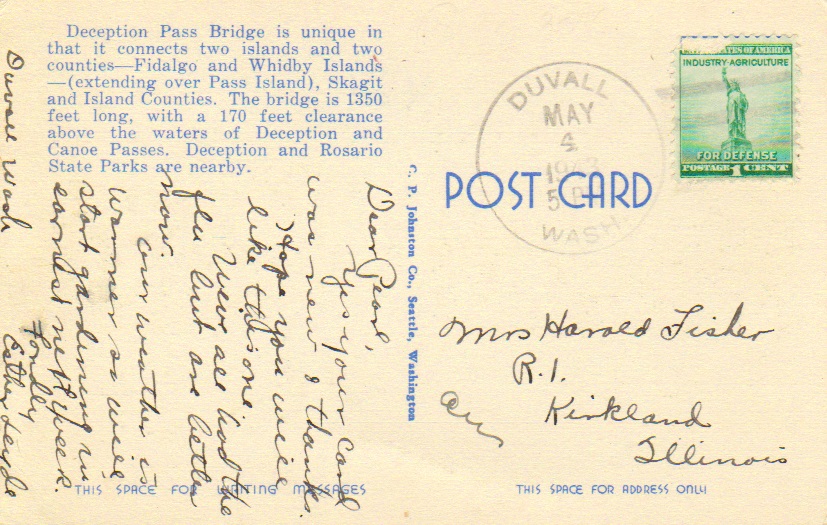 Deception Pass Bridge is unique in
that it connects two islands and two
counties—Fidalgo and Whidby Islands
—(extending over Pass Island), Skagit
and Island Counties. The bridge is 1350
feet long, with a 170 feet clearance
above the waters of Deception and
Canoe Passes. Deception and Rosario
State Parks are nearby.
Dear Pearl,
Yes your card
was new & thanks.
Hope you will
like this one.
Weve all had the
flu but are better
now.
Our weather is
warmer so will
start gardening in
earnest next week.
Fondly
Esther
Duvall Wash
C. P. Johnston Co., Seattle, Washington
THIS SPACE FOR WRITING MESSAGES
POST CARD
DUVALL
MAY
4
1943
5
WASH.
UNITED STATES OF AMERICA
INDUSTRY-AGRICULTURE
FOR DEFENSE
POSTAGE 1 CENT
Mrs Harold Fisher
R.1.
Kirkland
Illinois
THIS SPACE FOR ADDRESS ONLY